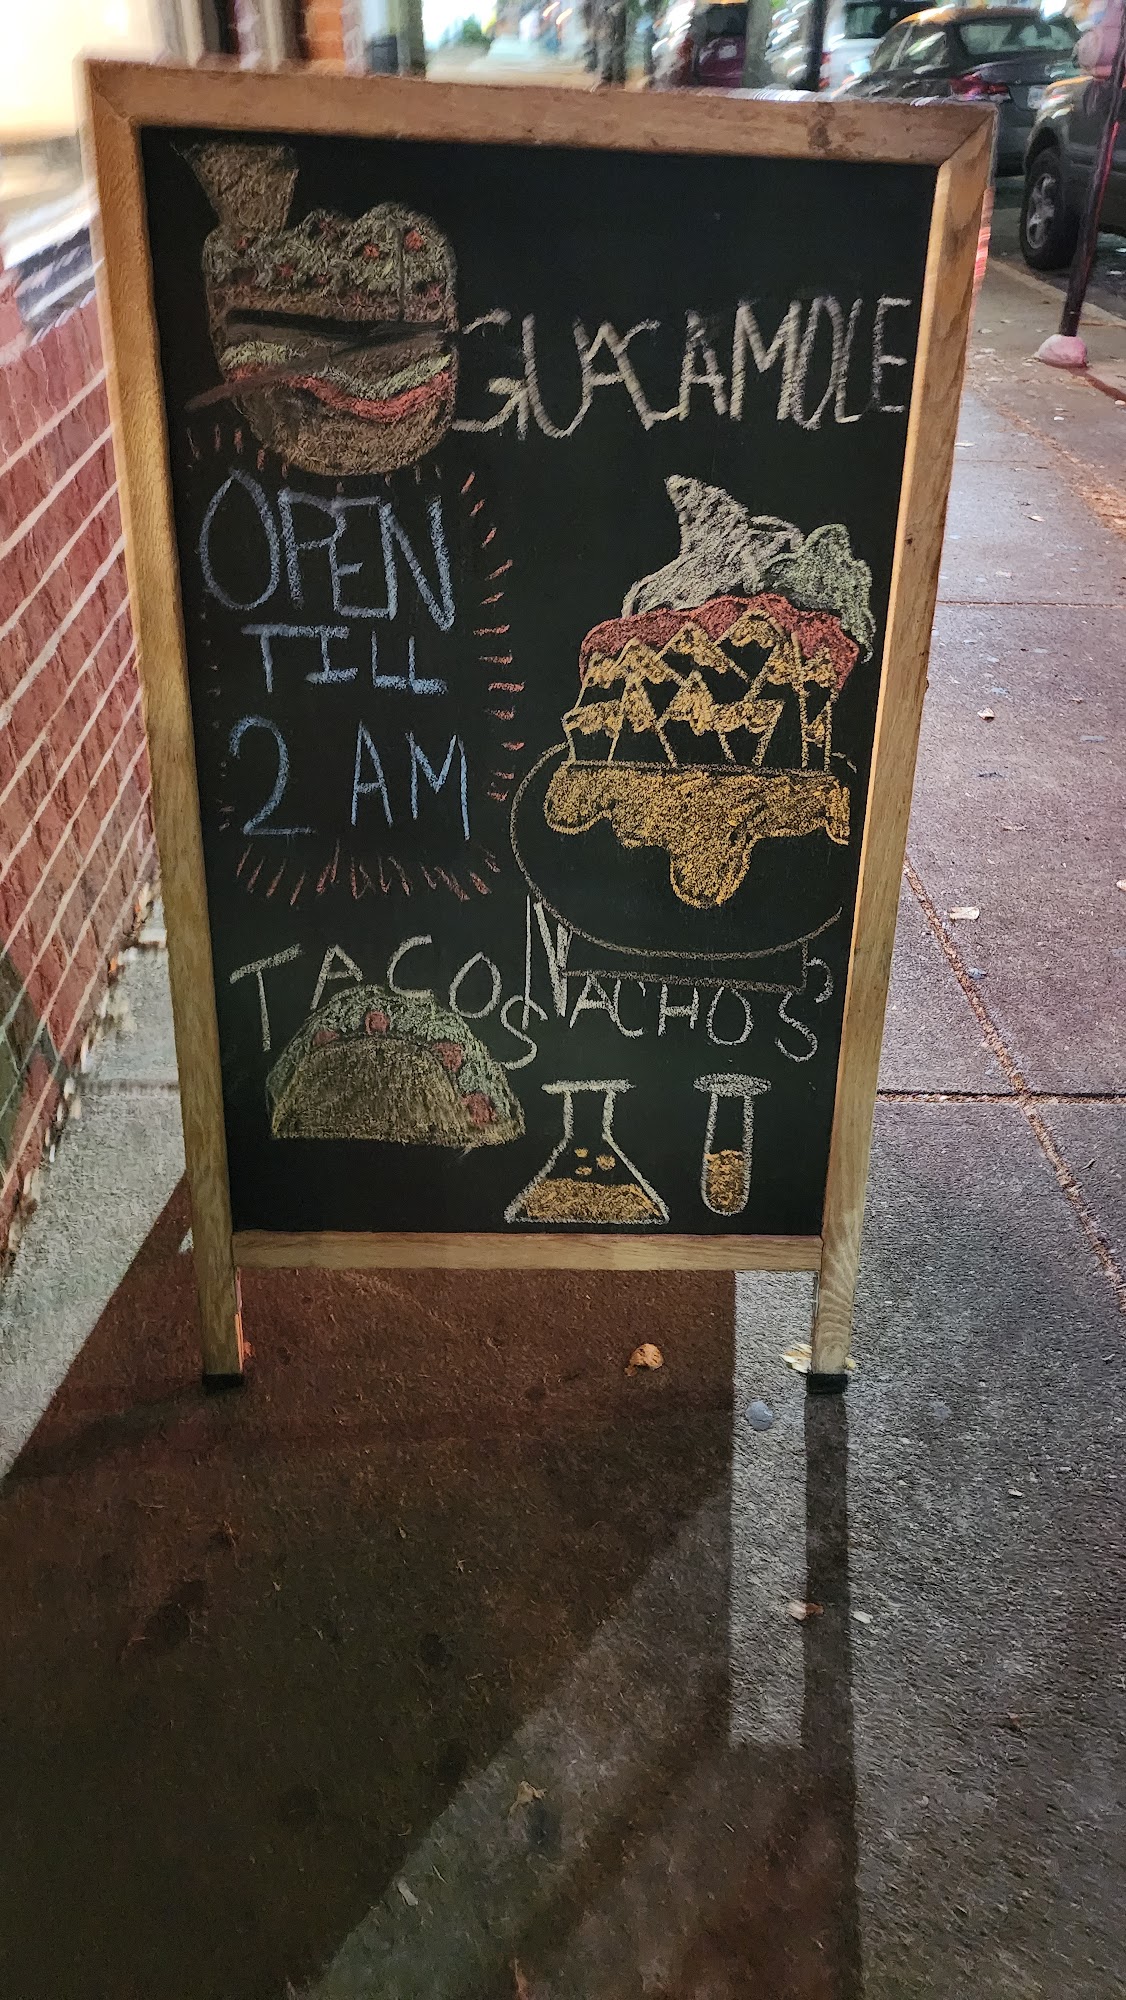 GUACAMOLE
OPEN
TILL
2 AM
TACOS
NACHOS